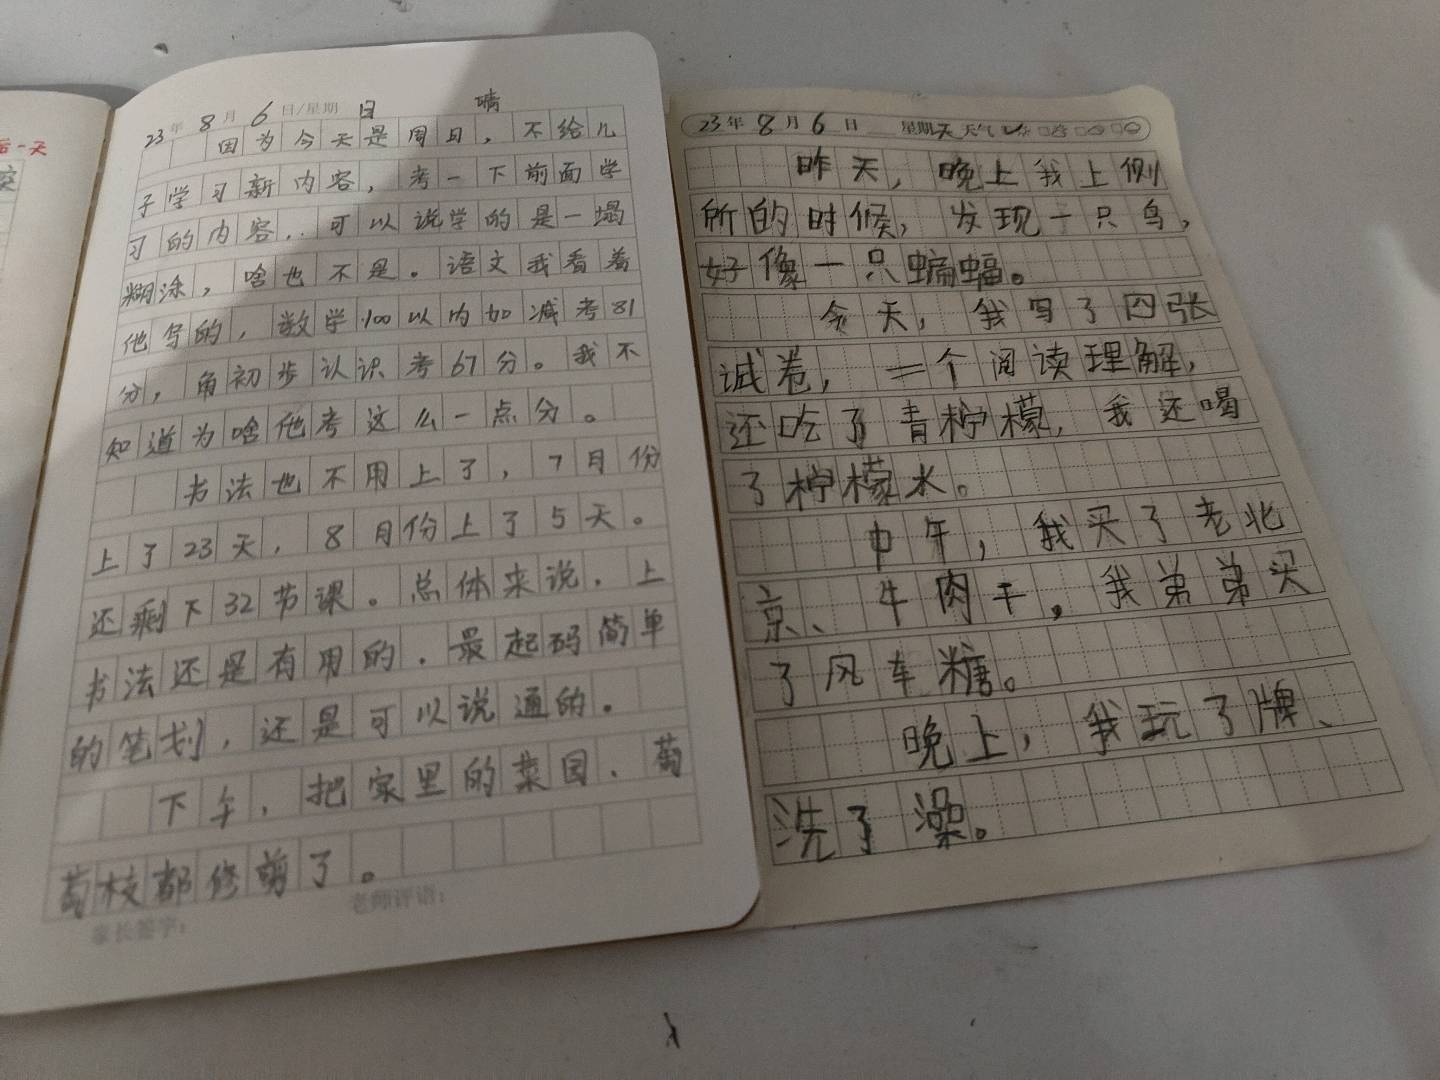 后一天
23年 8月 6日/星期 日 晴
因为今天是周日，不给儿
子学习新内容，考一下前面学
习的内容，可以说学的是一塌
糊涂，啥也不是。语文我看着
他写的，数学100以内加减考81
分，角初步认识考67分。我不
知道为啥他考这么一点分。
书法也不用上了，7月份
上了23天，8月份上了5天。
还剩下32节课。总体来说，上
书法还是有用的，最起码简单
的笔划，还是可以说通的。
下午，把家里的菜园、葡
萄枝都修剪了。
家长签字： 老师评语：
23年 8月 6日 星期天 天气
昨天，晚上我上侧
所的时候，发现一只鸟，
好像一只蝙蝠。
今天，我写了四张
试卷，一个阅读理解，
还吃了青柠檬，我还喝
了柠檬水。
中午，我买了老北
京、牛肉干，我弟弟买
了风车糖。
晚上，我玩了牌、
洗了澡。